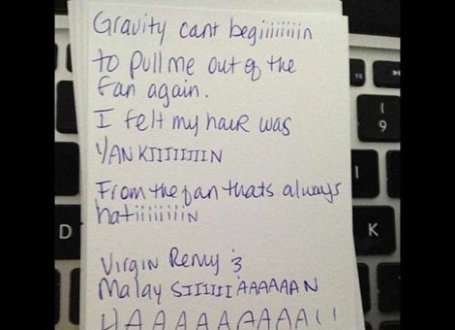 Gravity cant begiiiiiiiin
to pull me out of the
fan again.
I felt my hair was
YANKIIIIIIIN
From the fan thats always
hatiiiiiiiiN
Virgin Remy &
Malay SIIIIIIAAAAAAN
HAAAAAAAAAA!!
(
9
I
D
K